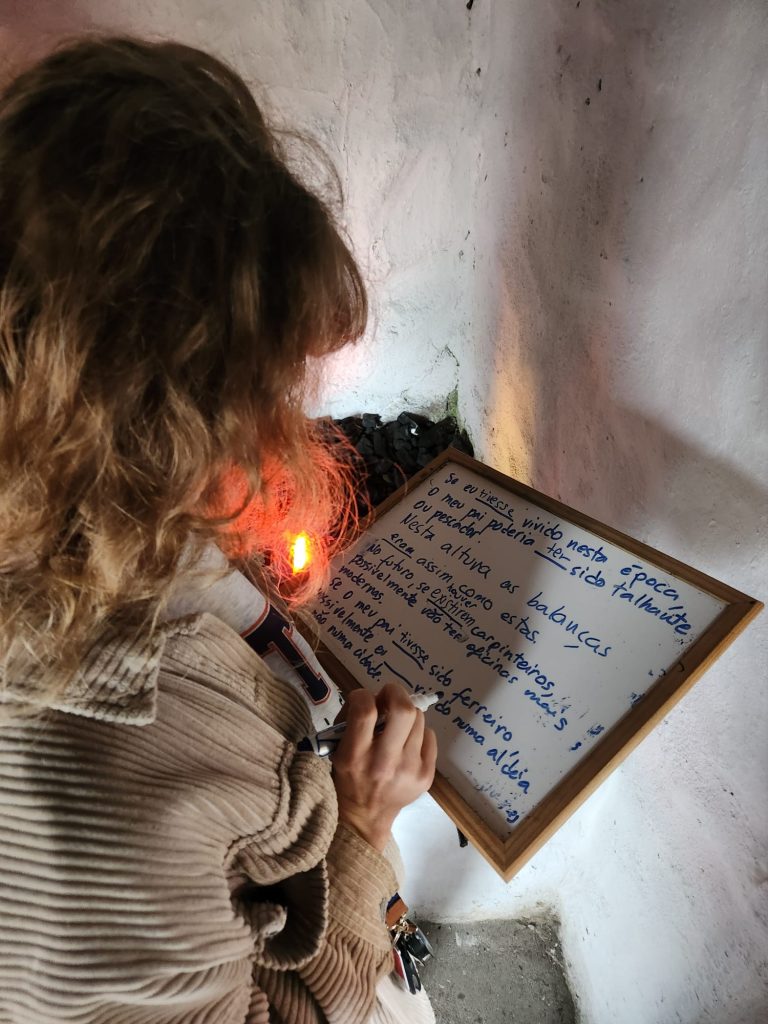 Se eu tivesse vivido nesta época,
O meu pai poderia ter sido talhante
ou pescador
Nesta altura as balanças
eram assim, como estas.
No futuro, se existirem carpinteiros,
houver
possivelmente vão ter oficinas mais
modernas.
Se o meu pai tivesse sido ferreiro,
numa aldeia
do numa aldeia